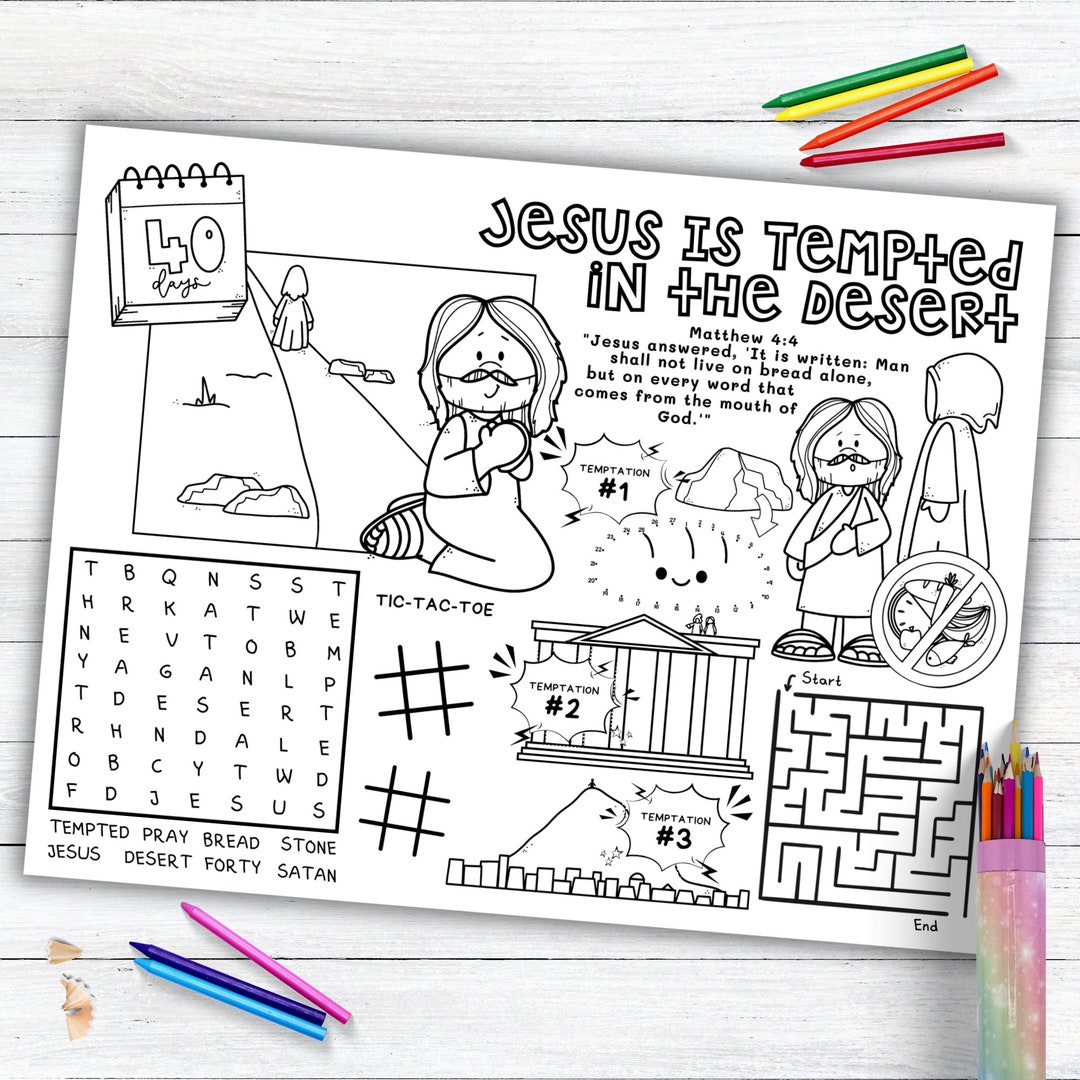 40
days
JESUS IS TEMPTED
IN THE DESERT
Matthew 4:4
"Jesus answered, 'It is written: Man
shall not live on bread alone,
but on every word that
comes from the mouth of
God.'"
TEMPTATION
#1
TIC-TAC-TOE
TEMPTATION
#2
TEMPTATION
#3
Start
End
T B Q N S S T
H R K A T W E
N E U T O B M
Y A G A N L P
T D E S E R T
R H N D A L E
O B C Y T W D
F D J E S U S
TEMPTED PRAY BREAD STONE
JESUS DESERT FORTY SATAN